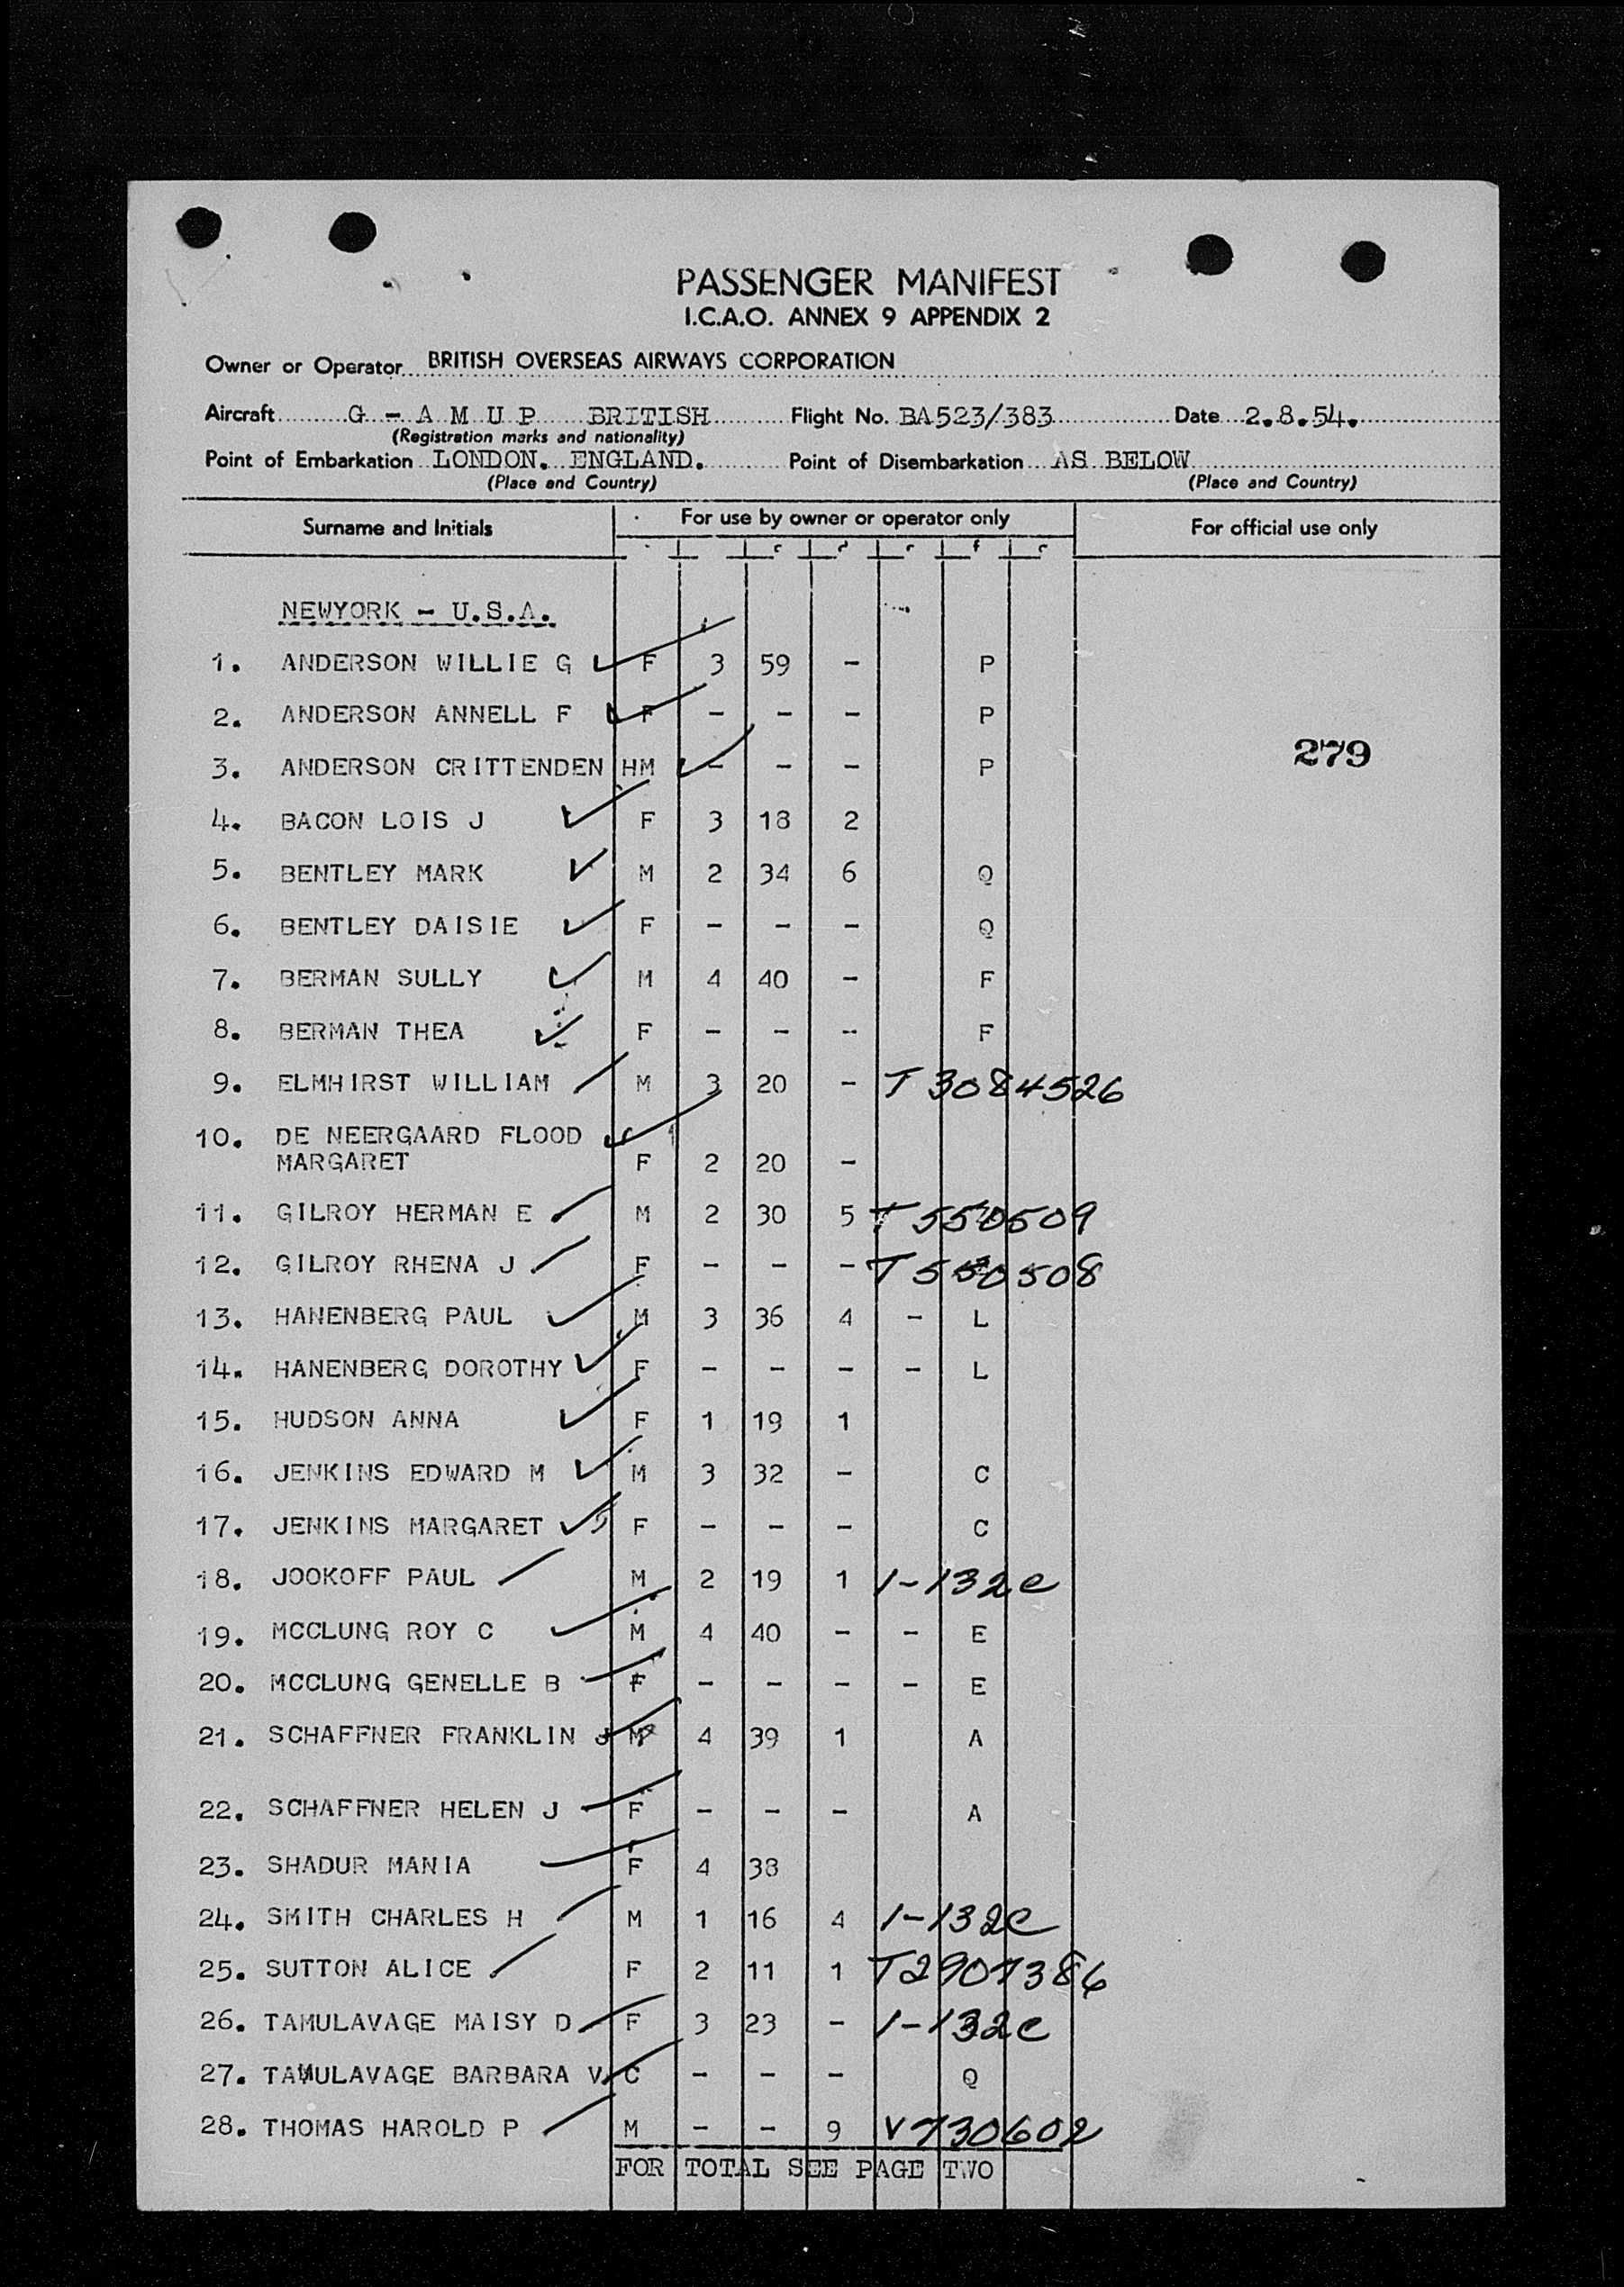 PASSENGER MANIFEST
I.C.A.O. ANNEX 9 APPENDIX 2
Owner or Operator BRITISH OVERSEAS AIRWAYS CORPORATION
Aircraft G - A M U P BRITISH Flight No. BA523/383 Date 2.8.54.
(Registration marks and nationality)
Point of Embarkation LONDON. ENGLAND. Point of Disembarkation AS BELOW
(Place and Country) (Place and Country)
Surname and Initials For use by owner or operator only For official use only
NEWYORK - U.S.A.
1. ANDERSON WILLIE G F 3 59 - P
2. ANDERSON ANNELL F F - - - P
279
3. ANDERSON CRITTENDEN HM - - - P
4. BACON LOIS J F 3 18 2
5. BENTLEY MARK M 2 34 6 Q
6. BENTLEY DAISIE F - - - Q
7. BERMAN SULLY M 4 40 - F
8. BERMAN THEA F - - - F
9. ELMHIRST WILLIAM M 3 20 - T 3084526
10. DE NEERGAARD FLOOD
MARGARET F 2 20 -
11. GILROY HERMAN E. M 2 30 5 T 550509
12. GILROY RHENA J. F - - - T 550508
13. HANENBERG PAUL M 3 36 4 - L
14. HANENBERG DOROTHY F - - - - L
15. HUDSON ANNA F 1 19 1
16. JENKINS EDWARD M M 3 32 - C
17. JENKINS MARGARET F - - - C
18. JOOKOFF PAUL M 2 19 1 1-132c
19. MCCLUNG ROY C M 4 40 - - E
20. MCCLUNG GENELLE B F - - - - E
21. SCHAFFNER FRANKLIN J M 4 39 1 A
22. SCHAFFNER HELEN J F - - - A
23. SHADUR MANIA F 4 38
24. SMITH CHARLES H M 1 16 4 1-132c
25. SUTTON ALICE. F 2 11 1 T2907386
26. TAMULAVAGE MAISY D. F 3 23 - 1-132c
27. TAMULAVAGE BARBARA V. C - - - Q
28. THOMAS HAROLD P M - - 9 V730602
FOR TOTAL SEE PAGE TWO